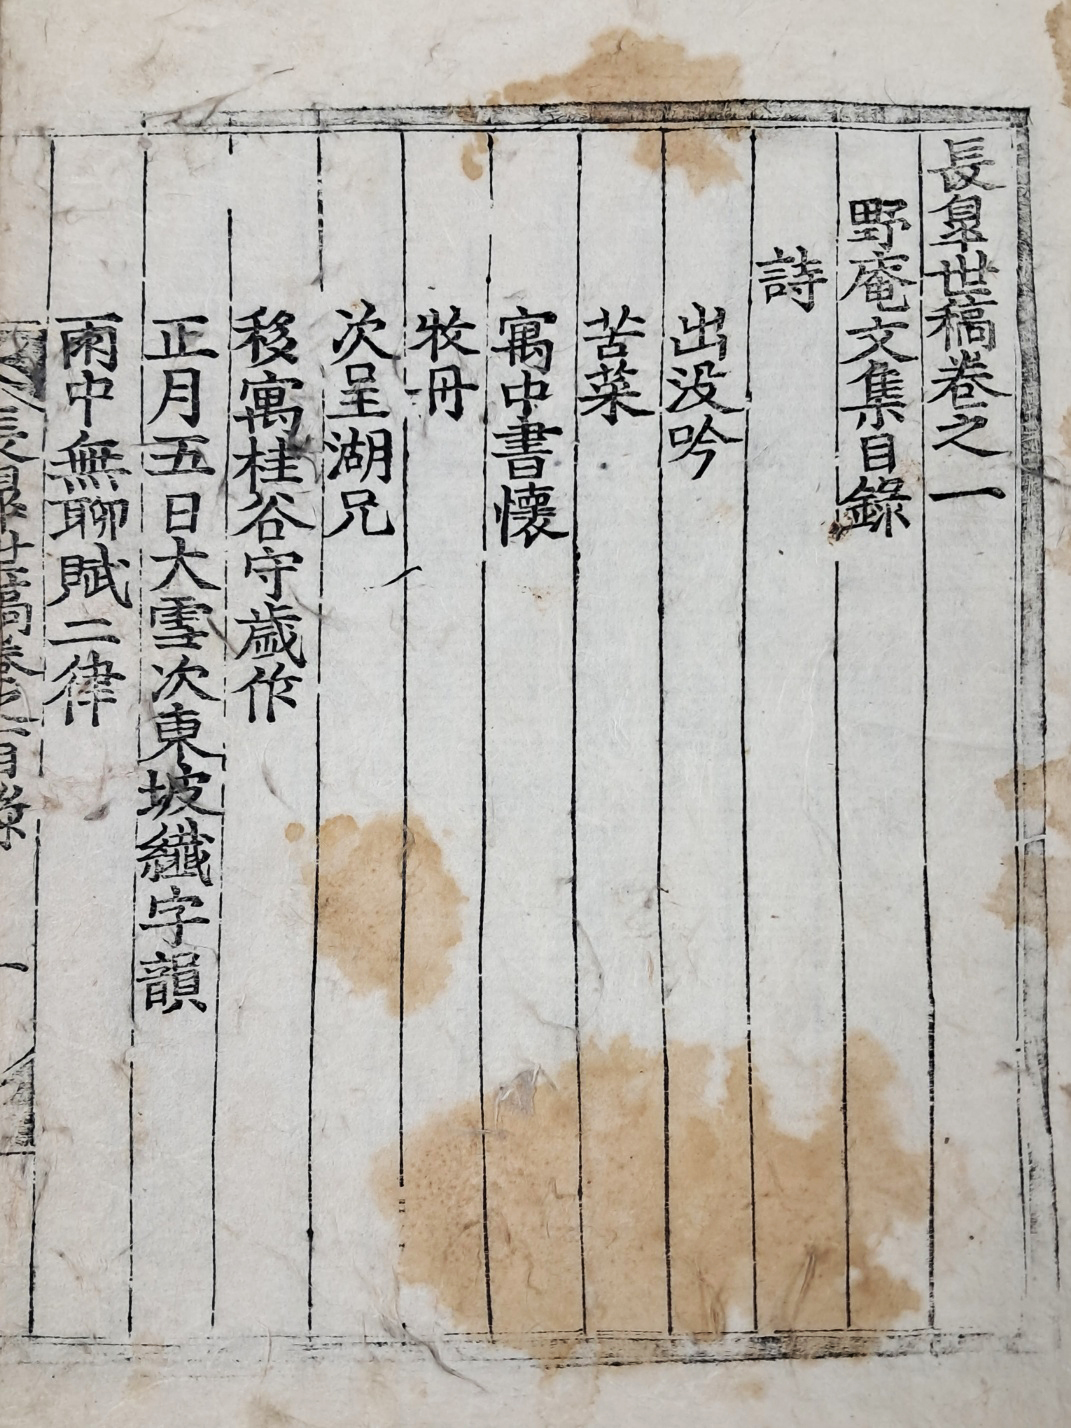 長皐世稿卷之一
野庵文集目錄
詩
出没吟
苦菜
寓中書懷
牧丹
次呈湖兄
移寓桂谷守歲作
正月五日大雪次東坡纖字韻
雨中無聊賦二律
長皐世稿卷之一目錄
一